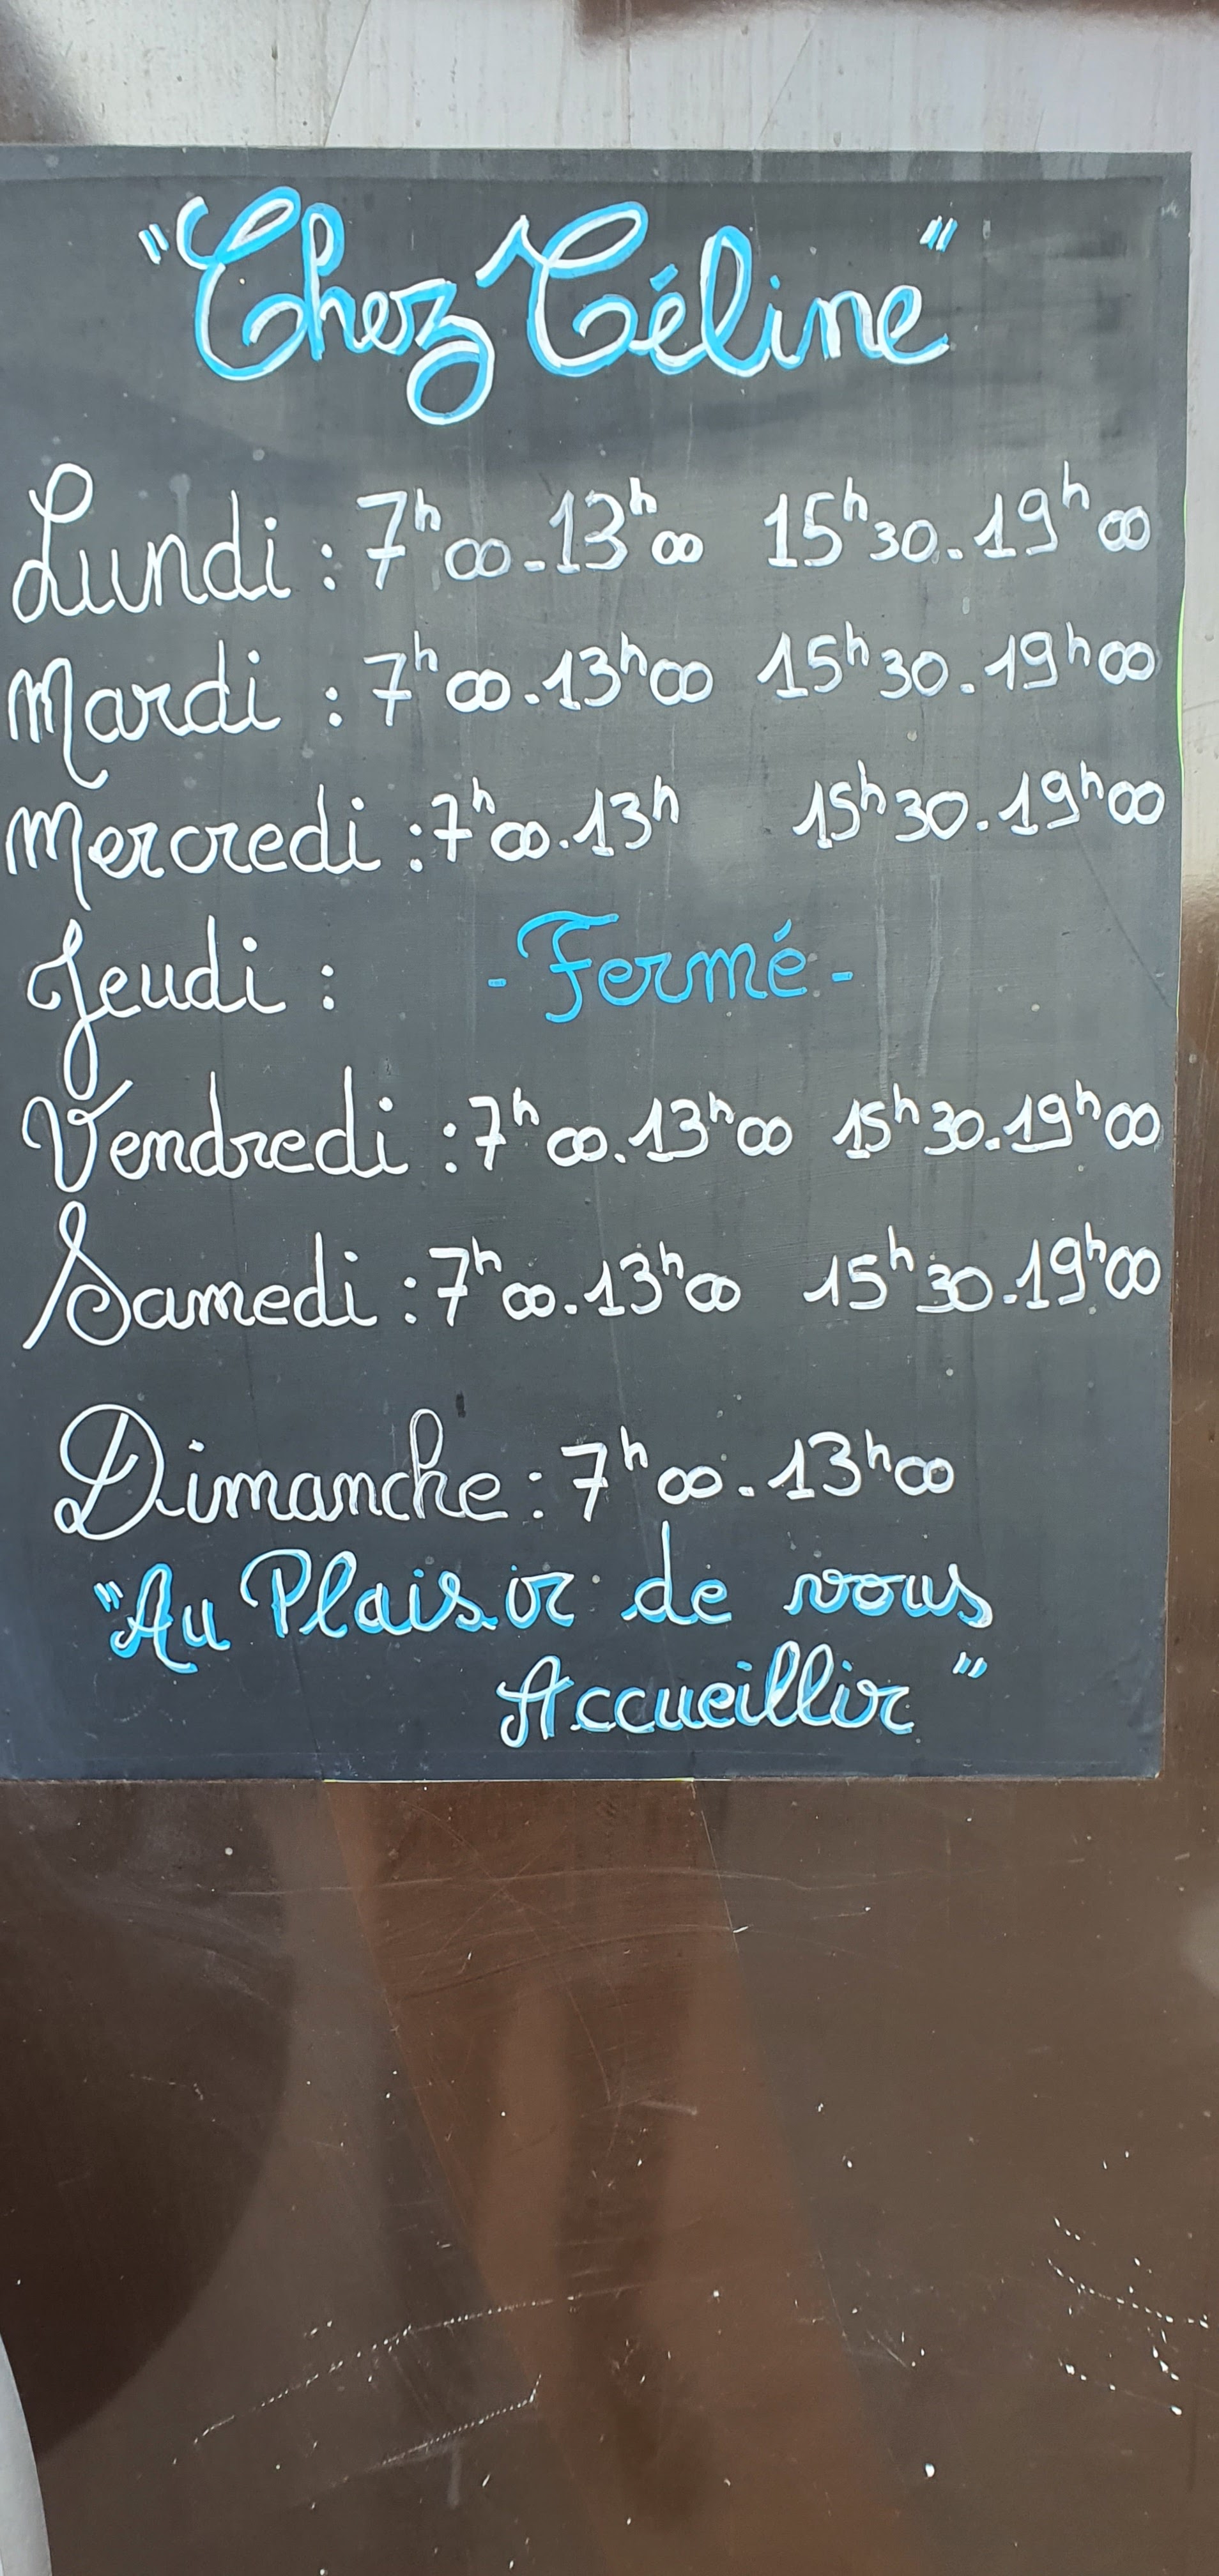 "Chez Céline"
Lundi : 7h00-13h00 15h30-19h00
Mardi : 7h00-13h00 15h30-19h00
Mercredi : 7h00-13h 15h30-19h00
Jeudi : -Fermé-
Vendredi : 7h00-13h00 15h30-19h00
Samedi : 7h00-13h00 15h30-19h00
Dimanche : 7h00-13h00
"Au Plaisir de vous
Accueillir"